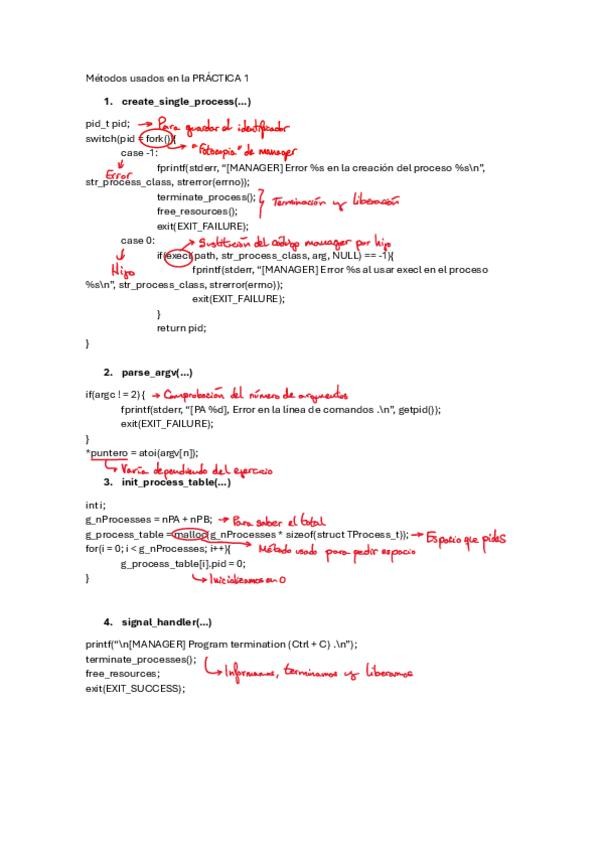 Métodos usados en la PRÁCTICA 1
1. create_single_process(...)
pid_t pid; → Para guardar el identificador
switch(pid = fork()){
→ "Fotocopia" de manager
case -1:
fprintf(stderr, “[MANAGER] Error %s en la creación del proceso %s\n”,
Error
str_process_class, strerror(errno));
terminate_process();
free_resources();
Terminación y liberación
exit(EXIT_FAILURE);
case 0: → Sustitución del código manager por hijo
if(execl(path, str_process_class, arg, NULL) == -1){
Hijo
fprintf(stderr, “[MANAGER] Error %s al usar execl en el proceso
%s\n”, str_process_class, strerror(errno));
exit(EXIT_FAILURE);
}
return pid;
}
2. parse_argv(...)
if(argc ! = 2) { → Comprobación del número de argumentos
fprintf(stderr, “[PA %d], Error en la línea de comandos .\n”, getpid());
exit(EXIT_FAILURE);
}
*puntero = atoi(argv[n]);
→ Varía dependiendo del ejercicio
3. init_process_table(...)
int i;
g_nProcesses = nPA + nPB; → Para saber el total
g_process_table = malloc(g_nProcesses * sizeof(struct TProcess_t)); → Espacio que pides
for(i = 0; i < g_nProcesses; i++){ → Método usado para pedir espacio
g_process_table[i].pid = 0;
} → Inicializamos en 0
4. signal_handler(...)
printf(“\n[MANAGER] Program termination (Ctrl + C) .\n”);
terminate_processes();
free_resources; → Informamos, terminamos y liberamos
exit(EXIT_SUCCESS);